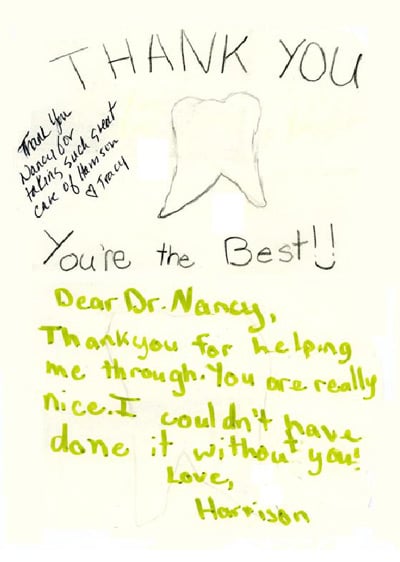 THANK YOU
Thank You
Nancy for
taking such great
care of Harrison
Tracy
You're the Best!!
Dear Dr. Nancy,
Thankyou for helping
me through. You are really
nice. I couldn't have
done it without you!
Love,
Harrison